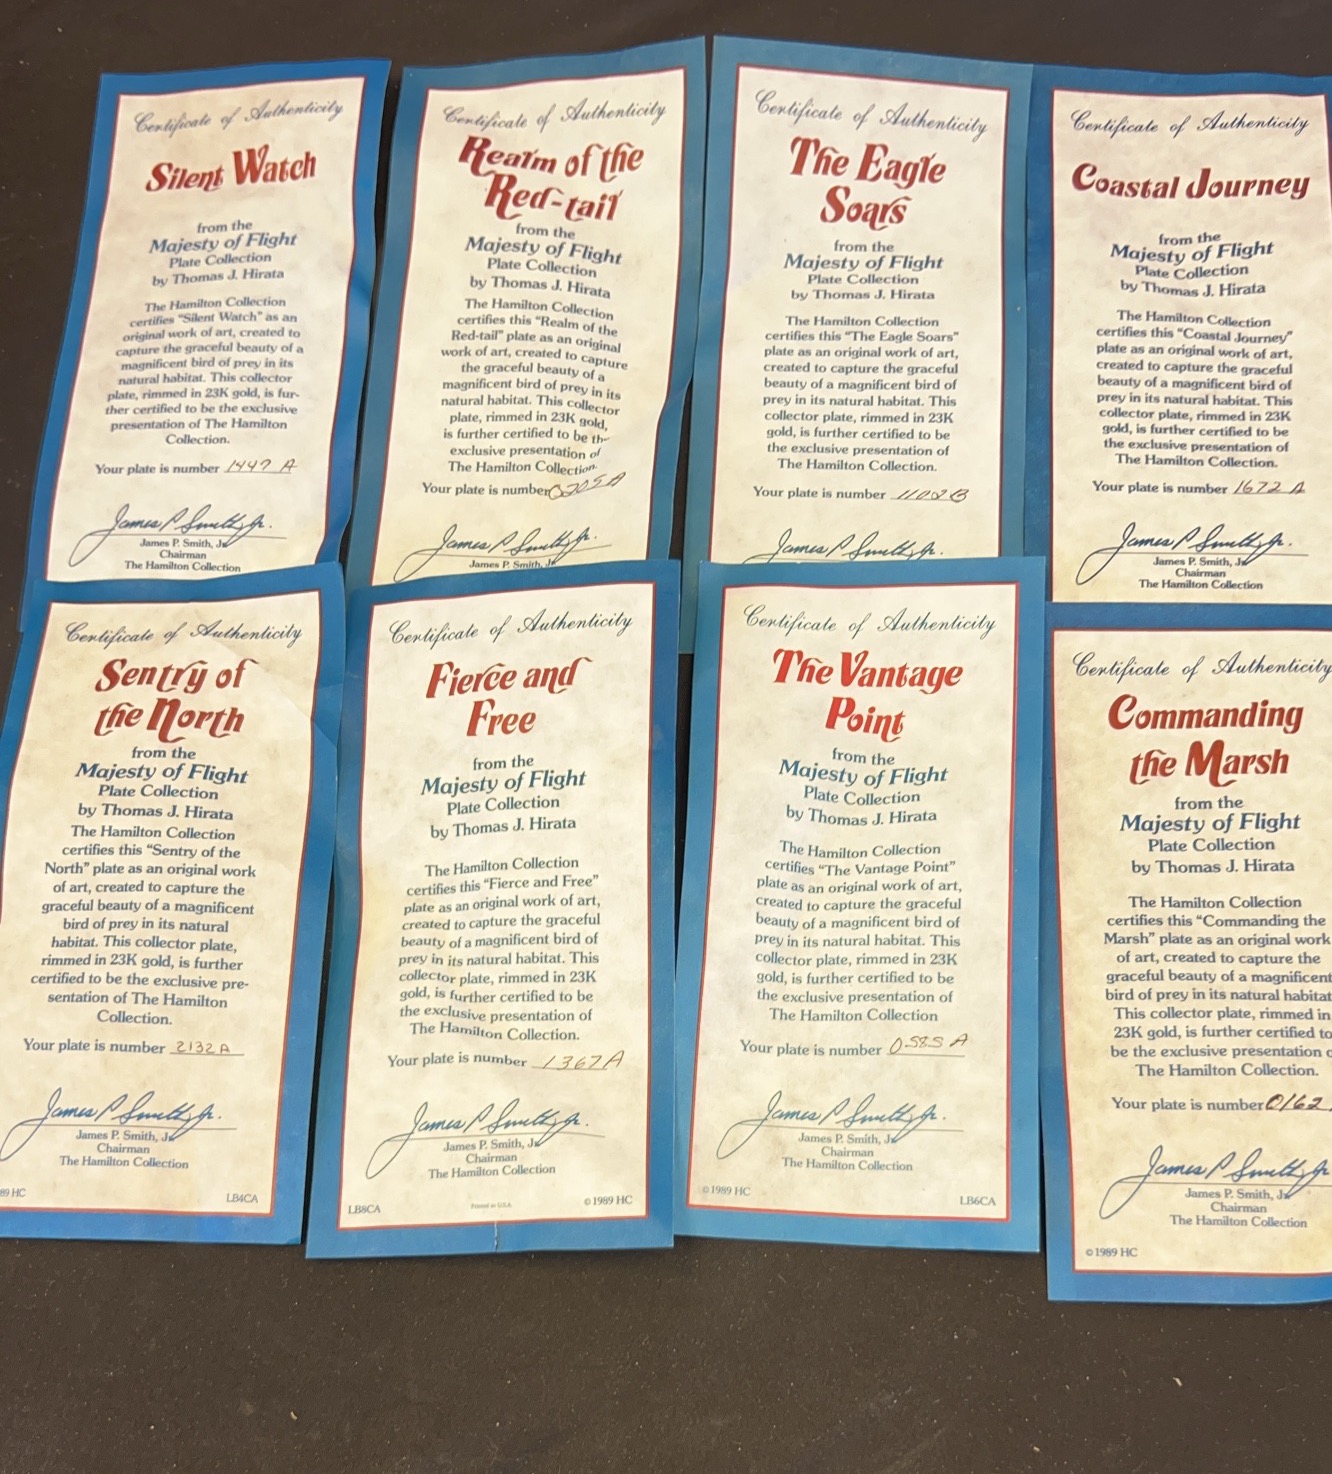 Certificate of Authenticity
Silent Watch
from the
Majesty of Flight
Plate Collection
by Thomas J. Hirata
The Hamilton Collection
certifies "Silent Watch" as an
original work of art, created to
capture the graceful beauty of a
magnificent bird of prey in its
natural habitat. This collector
plate, rimmed in 23K gold, is fur-
ther certified to be the exclusive
presentation of The Hamilton
Collection.
Your plate is number 1447 A
James P. Smith, Jr.
James P. Smith, Jr.
Chairman
The Hamilton Collection
Certificate of Authenticity
Realm of the
Red-tail
from the
Majesty of Flight
Plate Collection
by Thomas J. Hirata
The Hamilton Collection
certifies this "Realm of the
Red-tail" plate as an original
work of art, created to capture
the graceful beauty of a
magnificent bird of prey in its
natural habitat. This collector
plate, rimmed in 23K gold,
is further certified to be the
exclusive presentation of
The Hamilton Collection.
Your plate is number 0205A
James P. Smith, Jr.
James P. Smith, Jr.
Certificate of Authenticity
The Eagle
Soars
from the
Majesty of Flight
Plate Collection
by Thomas J. Hirata
The Hamilton Collection
certifies this "The Eagle Soars"
plate as an original work of art,
created to capture the graceful
beauty of a magnificent bird of
prey in its natural habitat. This
collector plate, rimmed in 23K
gold, is further certified to be
the exclusive presentation of
The Hamilton Collection.
Your plate is number
James P. Smith, Jr.
Certificate of Authenticity
Coastal Journey
from the
Majesty of Flight
Plate Collection
by Thomas J. Hirata
The Hamilton Collection
certifies this "Coastal Journey"
plate as an original work of art,
created to capture the graceful
beauty of a magnificent bird of
prey in its natural habitat. This
collector plate, rimmed in 23K
gold, is further certified to be
the exclusive presentation of
The Hamilton Collection.
Your plate is number 1672 A
James P. Smith, Jr.
James P. Smith, Jr.
Chairman
The Hamilton Collection
Certificate of Authenticity
Sentry of
the North
from the
Majesty of Flight
Plate Collection
by Thomas J. Hirata
The Hamilton Collection
certifies this "Sentry of the
North" plate as an original work
of art, created to capture the
graceful beauty of a magnificent
bird of prey in its natural
habitat. This collector plate,
rimmed in 23K gold, is further
certified to be the exclusive pre-
sentation of The Hamilton
Collection.
Your plate is number 2132A
James P. Smith, Jr.
James P. Smith, Jr.
Chairman
The Hamilton Collection
89 HC LB4CA
Certificate of Authenticity
Fierce and
Free
from the
Majesty of Flight
Plate Collection
by Thomas J. Hirata
The Hamilton Collection
certifies this "Fierce and Free"
plate as an original work of art,
created to capture the graceful
beauty of a magnificent bird of
prey in its natural habitat. This
collector plate, rimmed in 23K
gold, is further certified to be
the exclusive presentation of
The Hamilton Collection.
Your plate is number 1367A
James P. Smith, Jr.
James P. Smith, Jr.
Chairman
The Hamilton Collection
LB8CA Printed in U.S.A. © 1989 HC
Certificate of Authenticity
The Vantage
Point
from the
Majesty of Flight
Plate Collection
by Thomas J. Hirata
The Hamilton Collection
certifies "The Vantage Point"
plate as an original work of art,
created to capture the graceful
beauty of a magnificent bird of
prey in its natural habitat. This
collector plate, rimmed in 23K
gold, is further certified to be
the exclusive presentation of
The Hamilton Collection
Your plate is number 0585 A
James P. Smith, Jr.
James P. Smith, Jr.
Chairman
The Hamilton Collection
© 1989 HC LB6CA
Certificate of Authenticity
Commanding
the Marsh
from the
Majesty of Flight
Plate Collection
by Thomas J. Hirata
The Hamilton Collection
certifies this "Commanding the
Marsh" plate as an original work
of art, created to capture the
graceful beauty of a magnificent
bird of prey in its natural habitat
This collector plate, rimmed in
23K gold, is further certified to
be the exclusive presentation
The Hamilton Collection.
Your plate is number 0162
James P. Smith, Jr
James P. Smith, Jr
Chairman
The Hamilton Collection
© 1989 HC